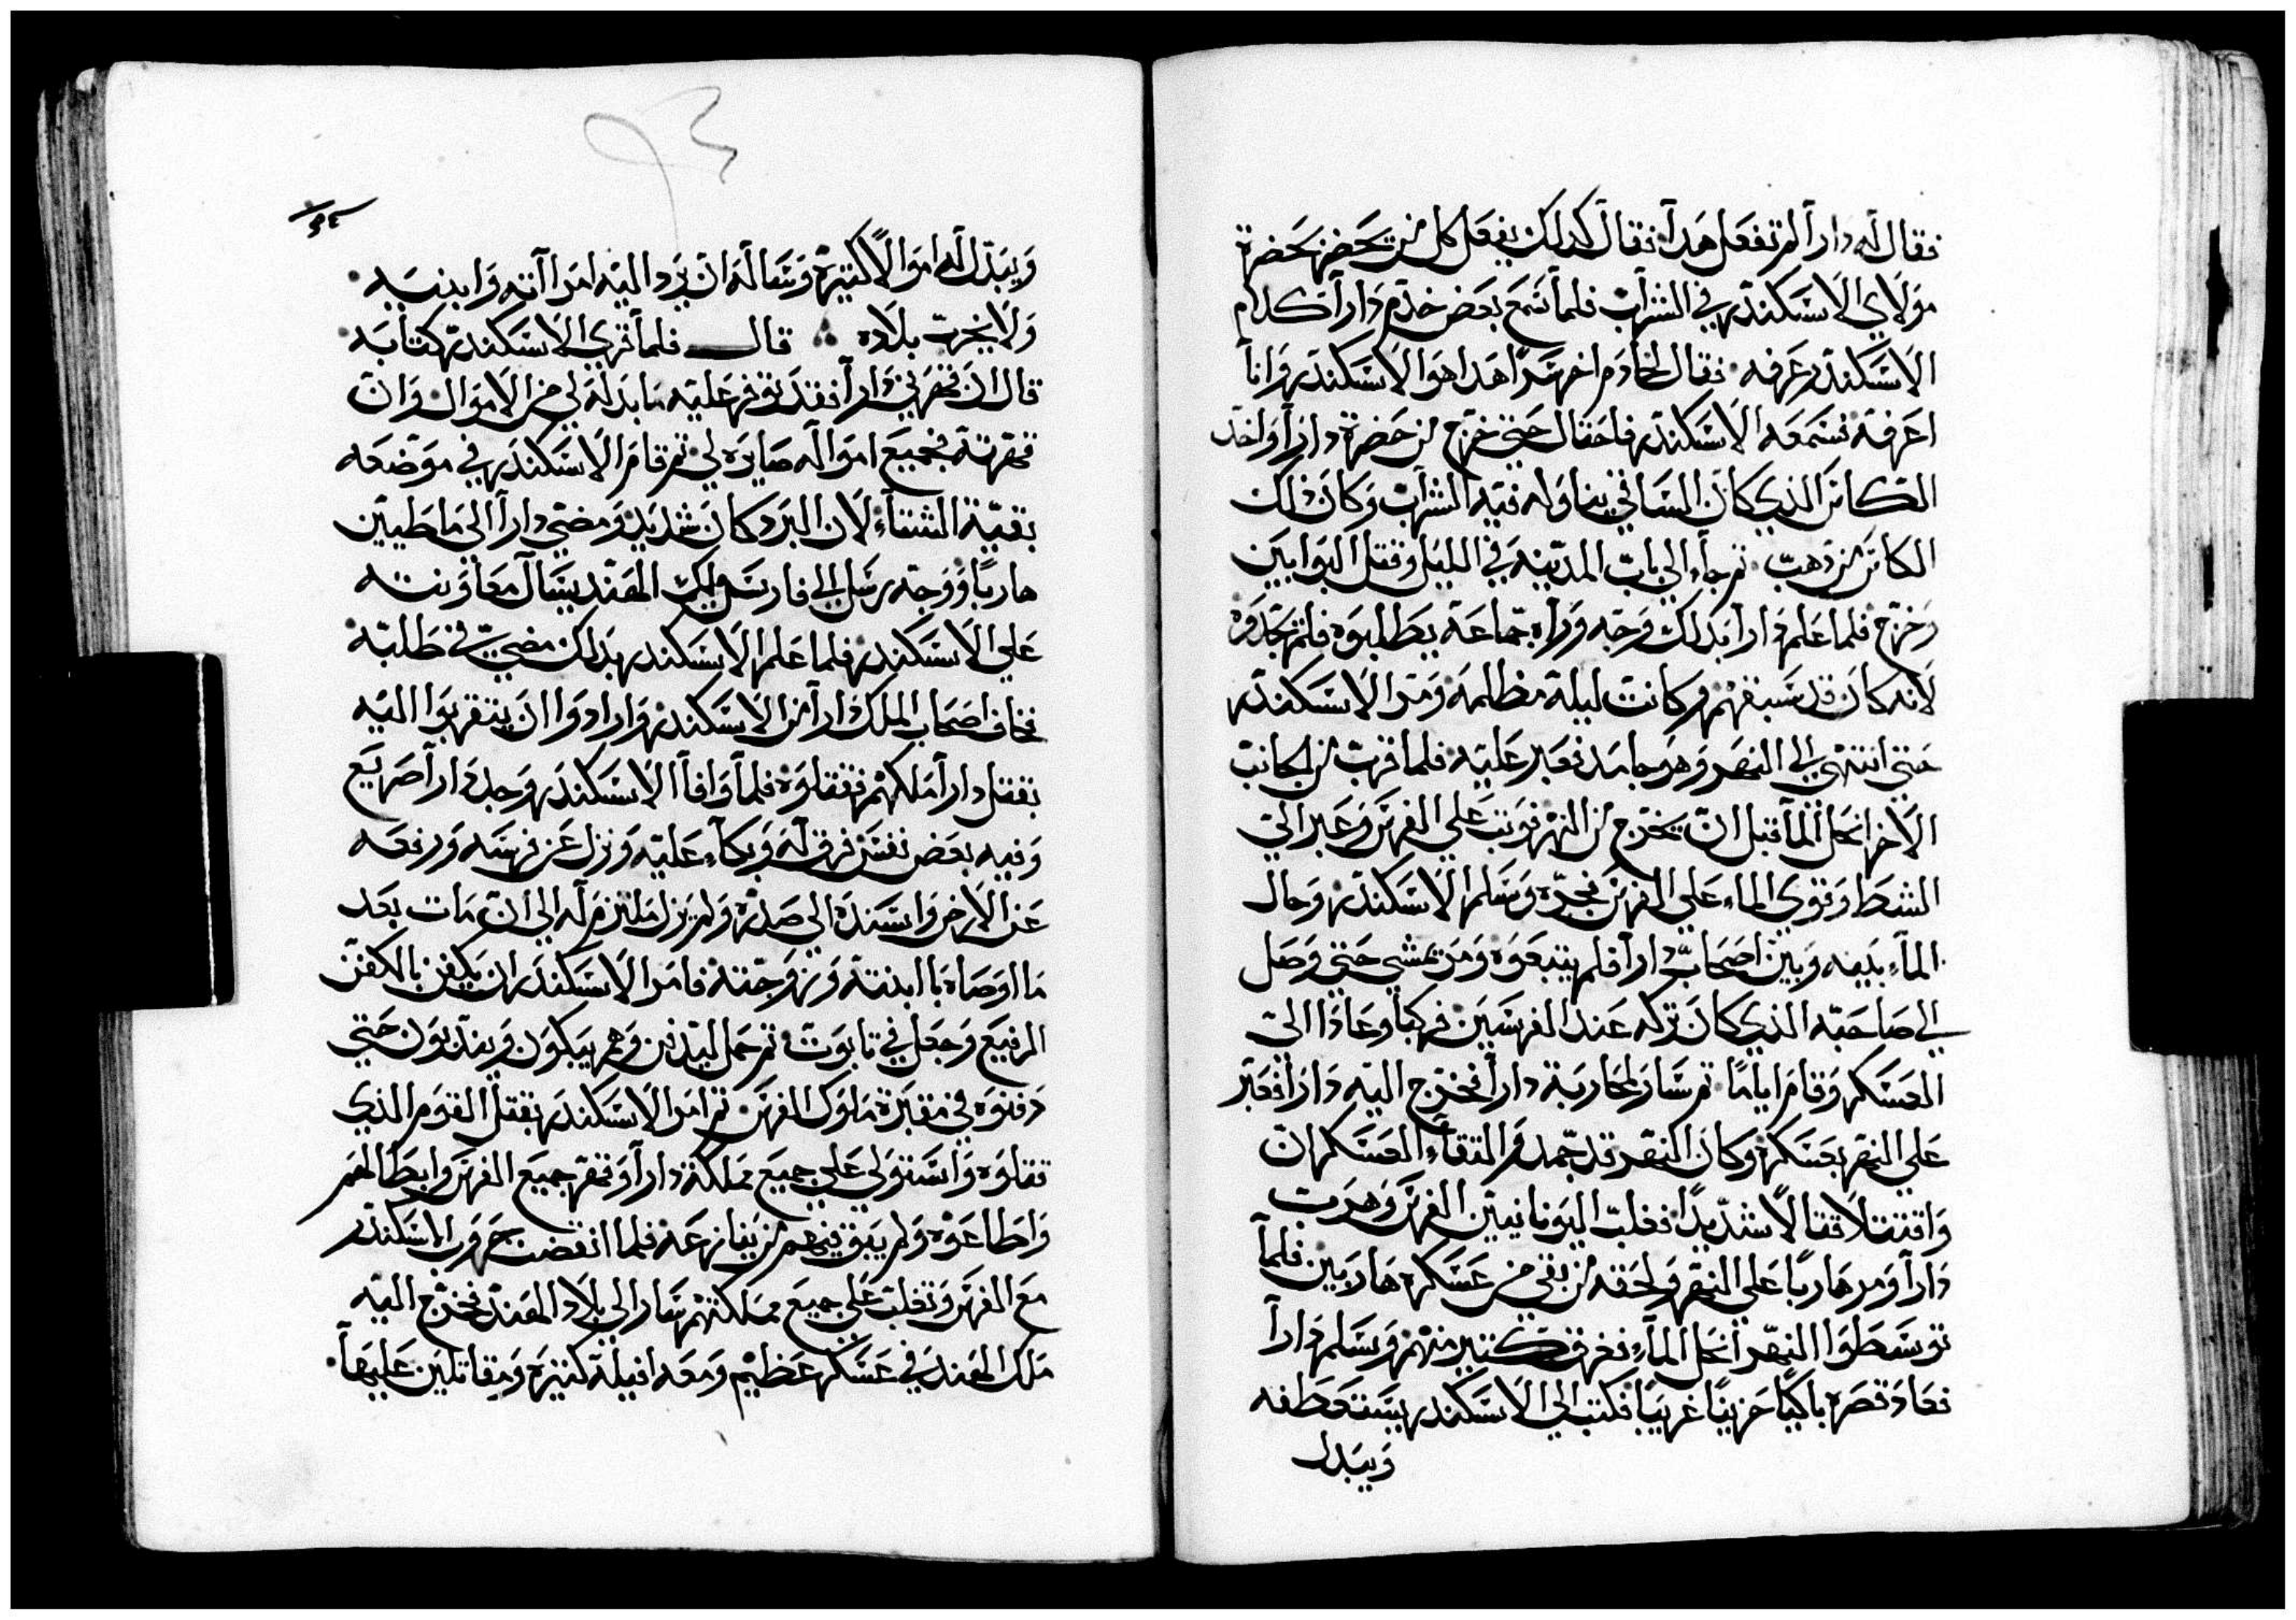 فقال له دارا لم تفعل هدا فقال كدلك يفعل كل من يحضر بحضرة
مولاي الاسكندر في الشراب فلما سمع بعض خدم دارا كلام
الاسكندر عرفه فقال لخادم اخر سرا هدا هوا الاسكندر وانا
اعرفه فسمعه الاسكندر فاحتال حتي خرج من حضرة دارا واخد
الكاس الذي كان الساقي يناوله فيه الشراب وكان ذلك
الكاس من دهب ثم جاء الي باب المدينه في الليل وقتل البوابين
وخرج فلما علم دارا بدلك وجه وراه جماعة يطلبوه فلم يجدوه
لانه كان قد سبقهم وكانت ليلة مظلمه ومر الاسكندر
حتي انتهي الي النهر وهو جامد فعبر عليه فلما قرب من الجانب
الاخر انحل الما قبل ان يخرج من النهر فوثب علي الفرس وعبر الي
الشط وقوي الماء علي الفرس فجره وسلم الاسكندر وحال
الماء بينه وبين اصحاب دارا فلم يتبعوه ومر يمشي حتي وصل
الي صاحبه الذي كان تركه عند الفرسين فركبا وعادا الي
العسكر وقام اياما ثم سار لمحاربة دارا فخرج اليه دارا فعبر
علي النهر بعسكره وكان النهر قد جمد والتقاء العسكران
واقتتلا قتالا شديدا فغلب اليونانيين الفرس وهربت
دارا ومر هاربا علي النهر ولحقه من بقي من عسكره هاربين فلما
توسطوا النهر انحل الماء فغرق كتير منهم وسلم دارا
فعاد قصره باكيا حزينا غريبا فكتب الي الاسكندر يستعطفه
ويبدل
٩٤
ويبدل له اموالا كتيرة وتساله ان يرد اليه امراته وابنته
ولا يخرب بلاده ∴ قال فلما قري الاسكندر كتابه
قال ان قهرني دارا فقد توفر عليه ما بدله لي من الاموال وان
قهرته فجميع امواله صايره لي تم قام الاسكندر في موضعه
بقية الشتاء لان البرد كان شديد ومضي دارا الي ماطيين
هاربا ووجه رسل الي فارس ملك الهند يسال معاونته
علي الاسكندر فلما علم الاسكندر بدلك مضي في طلبه
فخاف اصحاب الملك دارا من الاسكندر وارادوا ان يتقربوا اليه
بقتل دارا ملكهم فقتلوه فلما وافا الاسكندر وجد دارا صريع
وفيه بعض نفس فرق له وبكاء عليه ونزل عن فرسه ورفعه
عن الارض واسنده الي صدره ولم يزل ملتزم له الي ان مات بعد
ما اوصاه با ابنته وزوجته فامر الاسكندر ان يكفن بالكفن
الرفيع وجعل في تابوت تم حمل ليدفن وهم يبكون ويندبون حتي
دفنوه في مقبرة ملوك الفرس تم امر الاسكندر بقتل القوم الذي
قتلوه واستولي علي جميع مملكة دارا وقهر جميع الفرس وابطالهم
واطاعوه ولم يبق فيهم من ينازعه فلما انقضت حروب الاسكندر
مع الفرس وتغلب علي جميع مملكتهم سار الي بلاد الهند فخرج اليه
ملك الهند في عسكر عظيم ومعه افيلة كتيره ومقاتلين عليها